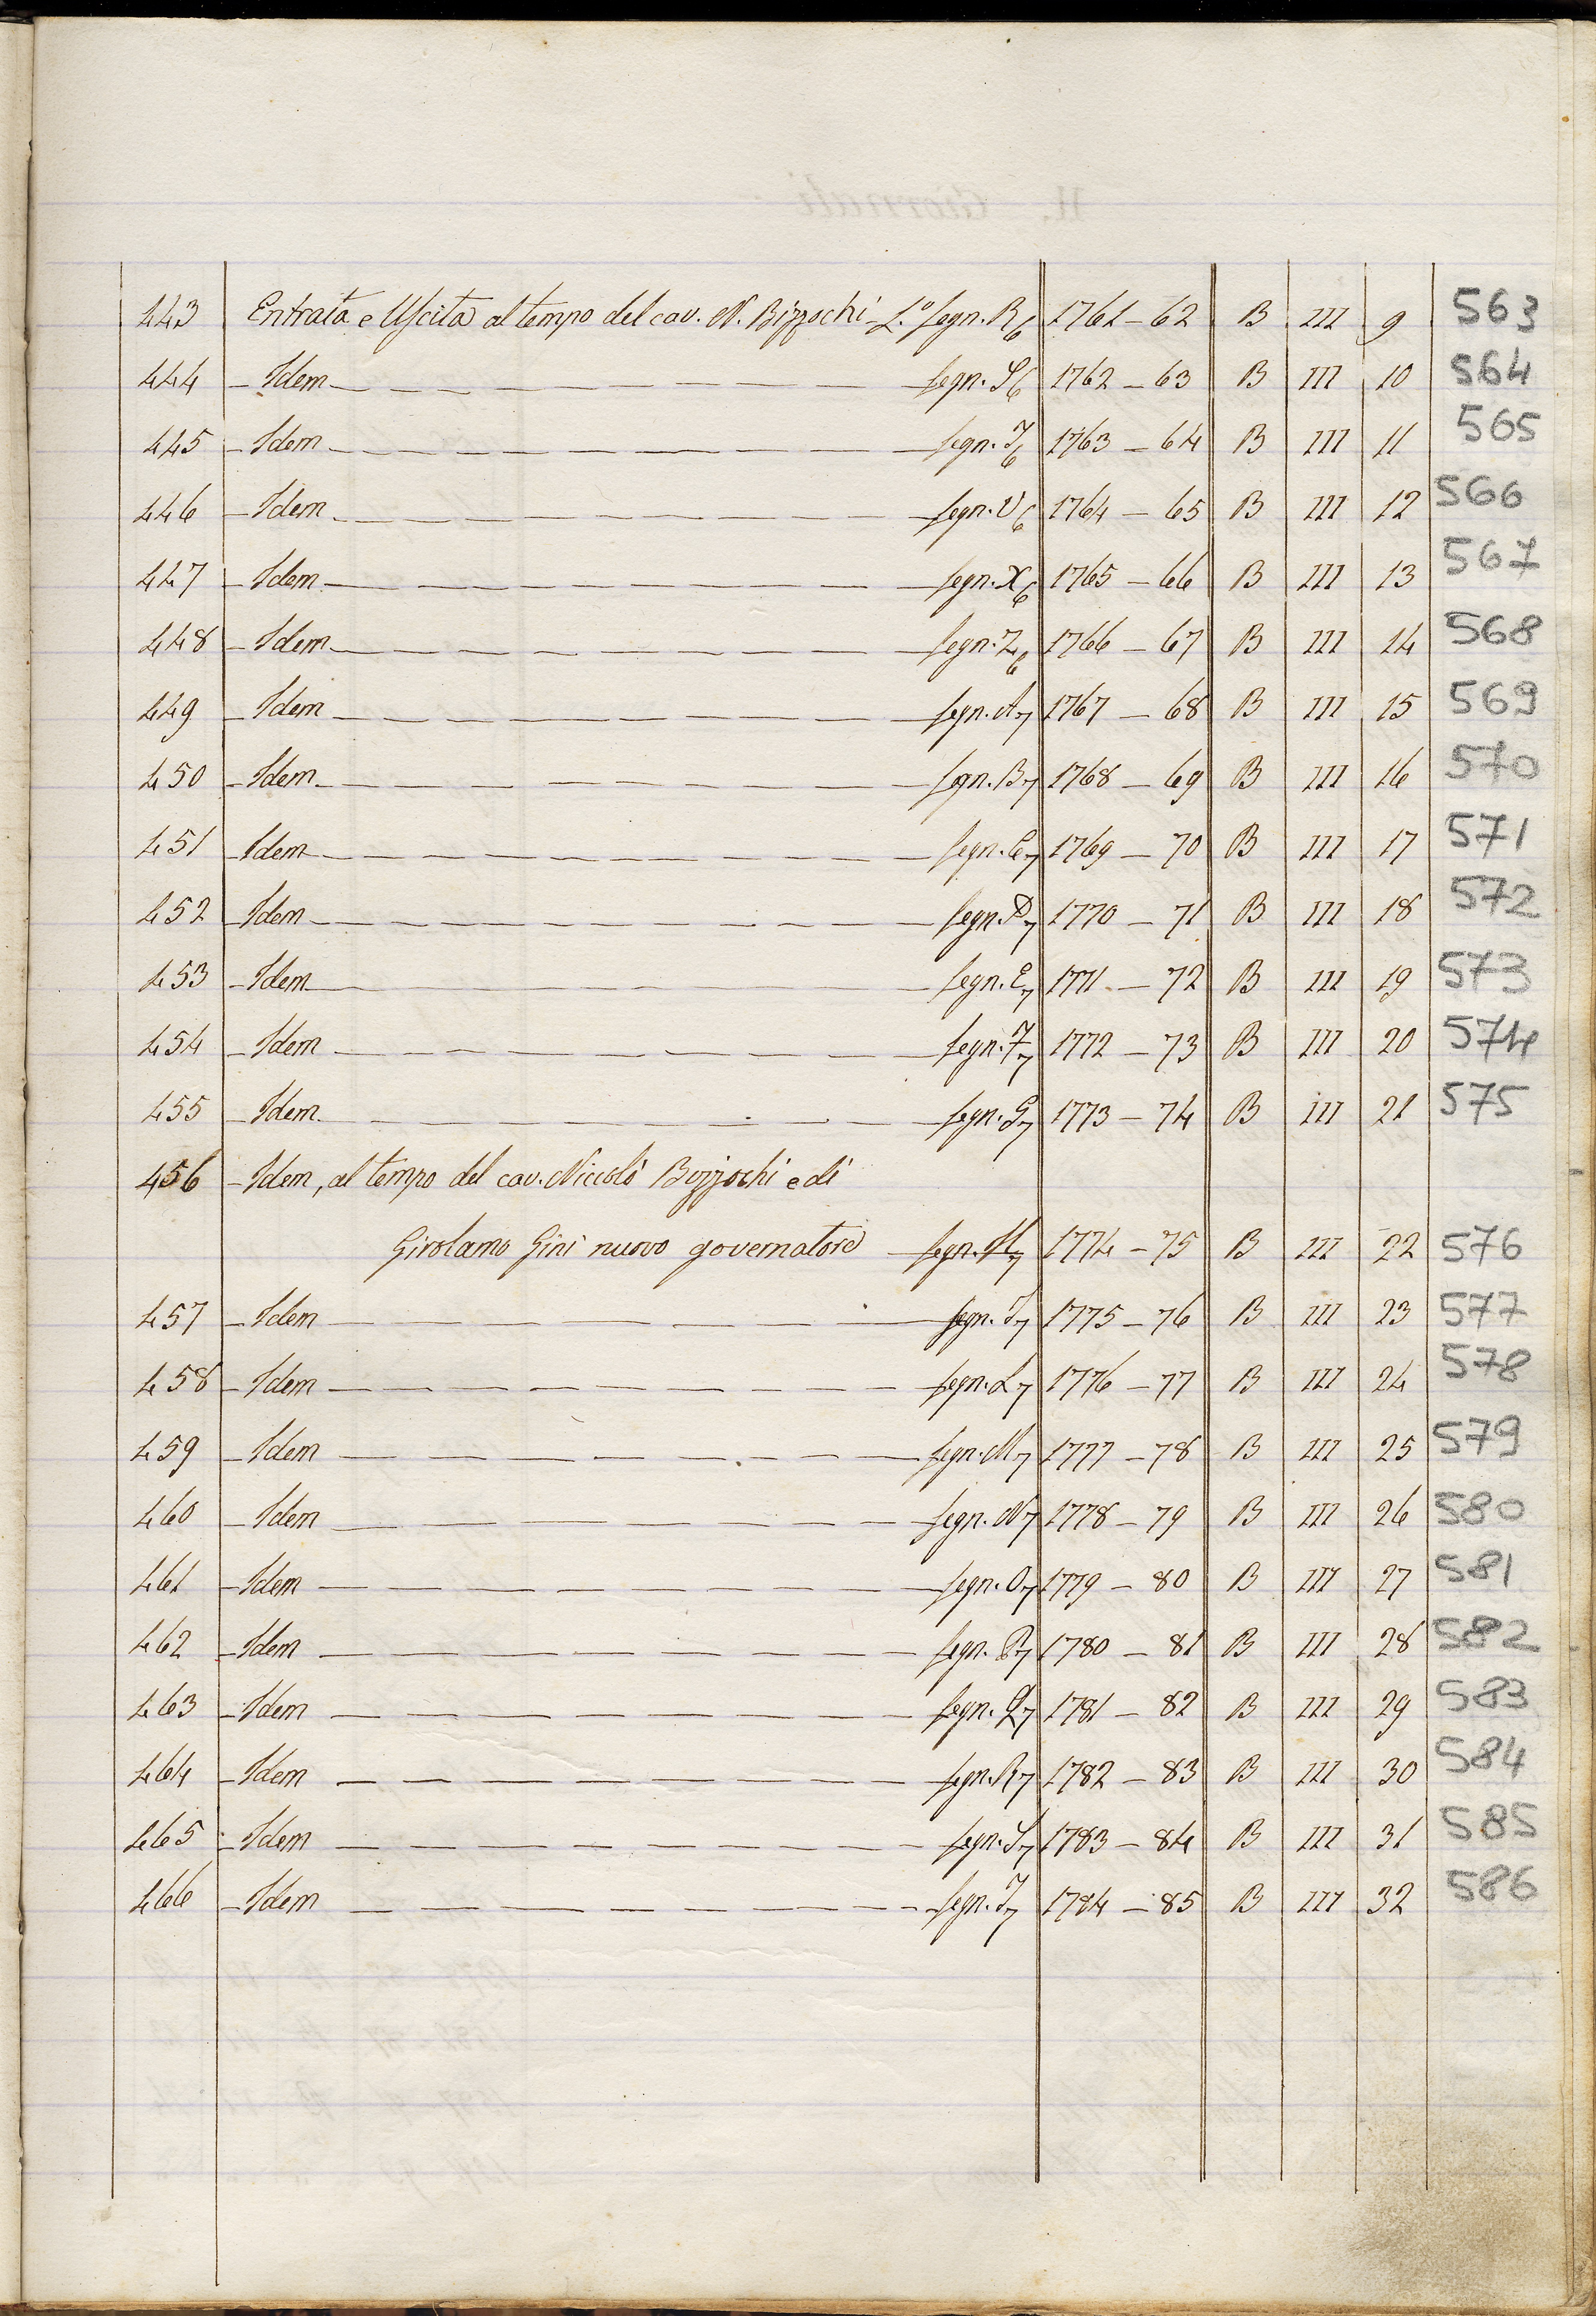 443 Entrata e Uscita al tempo del cav. N. Bizzochi L.º segn. R6 1761 – 62 B III 9 563
444 – Idem – segn. S6 1762 – 63 B III 10 564
445 – Idem – segn. T6 1763 – 64 B III 11 565
446 – Idem – segn. V6 1764 – 65 B III 12 566
447 – Idem – segn. X6 1765 – 66 B III 13 567
448 – Idem – segn. Z6 1766 – 67 B III 14 568
449 – Idem – segn. A7 1767 – 68 B III 15 569
450 – Idem – segn. B7 1768 – 69 B III 16 570
451 – Idem – segn. C7 1769 – 70 B III 17 571
452 – Idem – segn. D7 1770 – 71 B III 18 572
453 – Idem – segn. E7 1771 – 72 B III 19 573
454 – Idem – segn. F7 1772 – 73 B III 20 574
455 – Idem – segn. G7 1773 – 74 B III 21 575
456 – Idem, al tempo del cav. Niccolò Bizzochi e di
Girolamo Gini nuovo governatore – segn. H7 1774 – 75 B III 22 576
457 – Idem – segn. I7 1775 – 76 B III 23 577
458 – Idem – segn. L7 1776 – 77 B III 24 578
459 – Idem – segn. M7 1777 – 78 B III 25 579
460 – Idem – segn. N7 1778 – 79 B III 26 580
461 – Idem – segn. O7 1779 – 80 B III 27 581
462 – Idem – segn. P7 1780 – 81 B III 28 582
463 – Idem – segn. Q7 1781 – 82 B III 29 583
464 – Idem – segn. R7 1782 – 83 B III 30 584
465 – Idem – segn. S7 1783 – 84 B III 31 585
466 – Idem – segn. T7 1784 – 85 B III 32 586